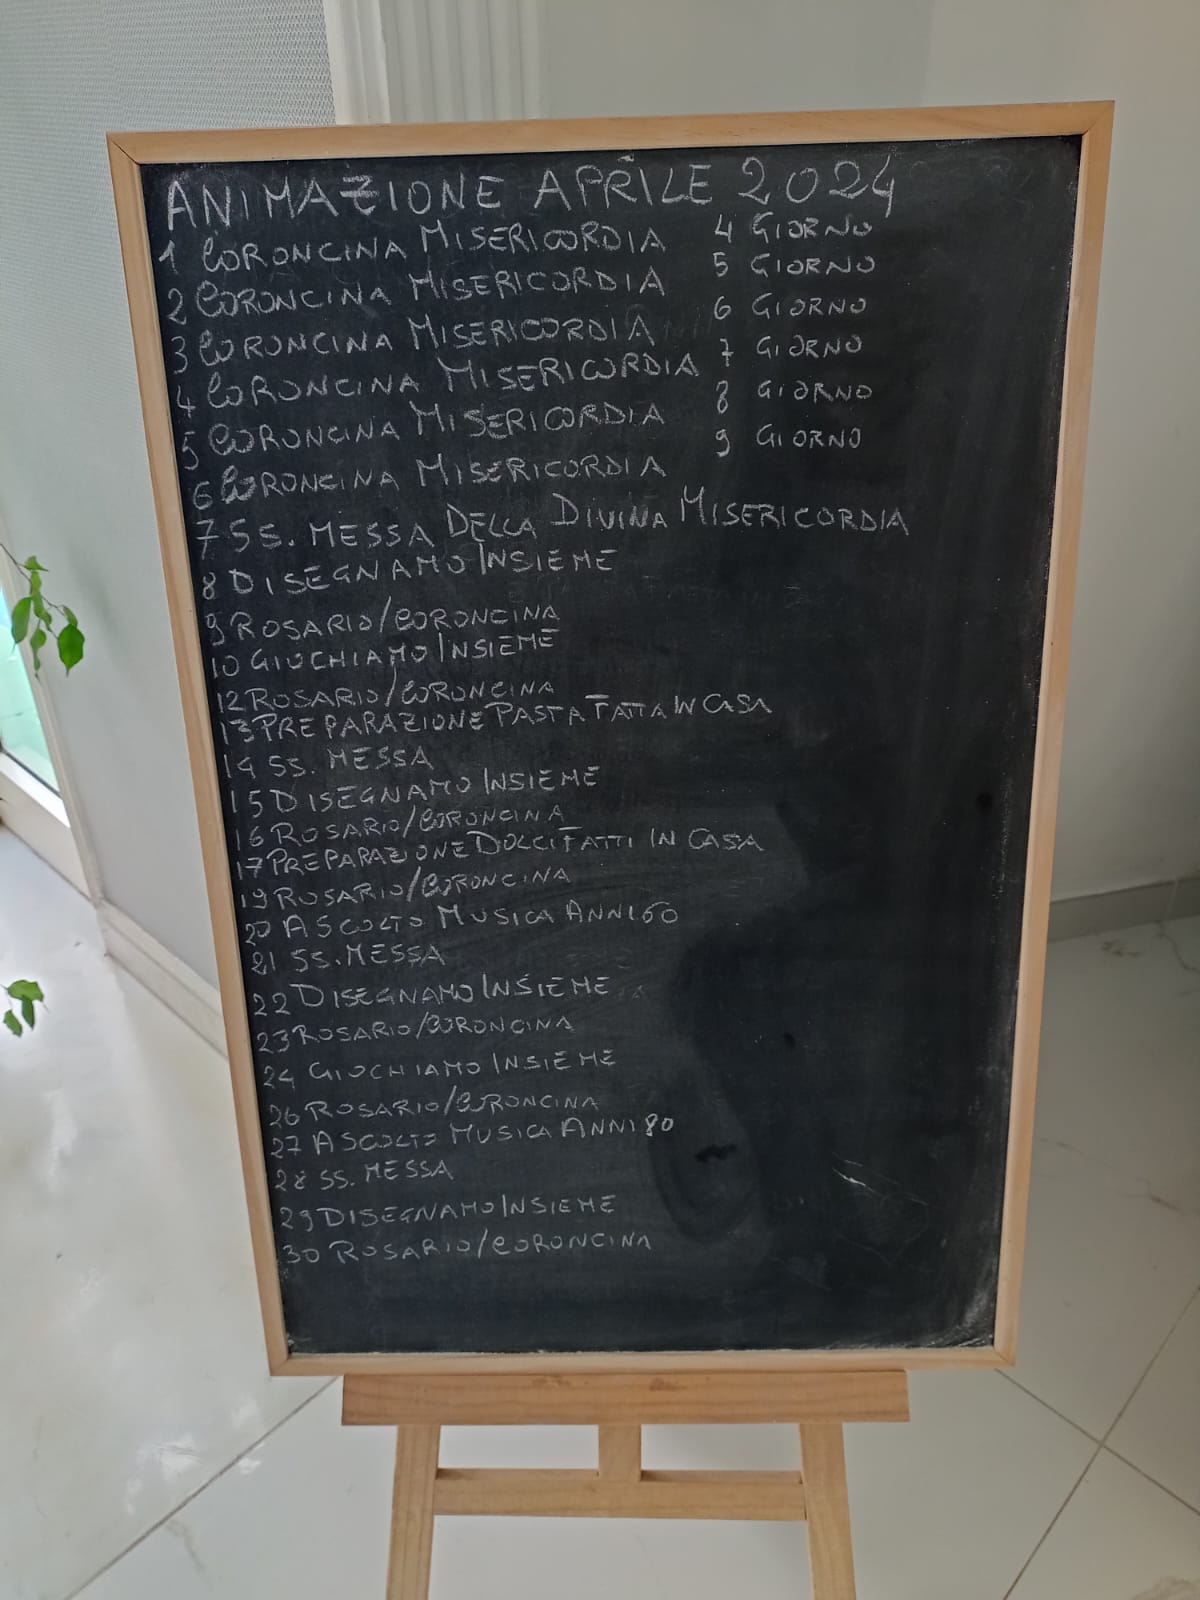 ANIMAZIONE APRILE 2024
1 CORONCINA MISERICORDIA 4 GIORNO
2 CORONCINA MISERICORDIA 5 GIORNO
3 CORONCINA MISERICORDIA 6 GIORNO
4 CORONCINA MISERICORDIA 7 GIORNO
5 CORONCINA MISERICORDIA 8 GIORNO
6 CORONCINA MISERICORDIA 9 GIORNO
7 SS. MESSA DELLA DIVINA MISERICORDIA
8 DISEGNAMO INSIEME
9 ROSARIO/CORONCINA
10 GIUCHIAMO INSIEME
12 ROSARIO/CORONCINA
13 PREPARAZIONE PASTA FATTA IN CASA
14 SS. MESSA
15 DISEGNAMO INSIEME
16 ROSARIO/CORONCINA
17 PREPARAZIONE DOLCI FATTI IN CASA
19 ROSARIO/CORONCINA
20 ASCOLTO MUSICA ANNI 60
21 SS. MESSA
22 DISEGNAMO INSIEME
23 ROSARIO/CORONCINA
24 GIOCHIAMO INSIEME
26 ROSARIO/CORONCINA
27 ASCOLTO MUSICA ANNI 80
28 SS. MESSA
29 DISEGNAMO INSIEME
30 ROSARIO/CORONCINA